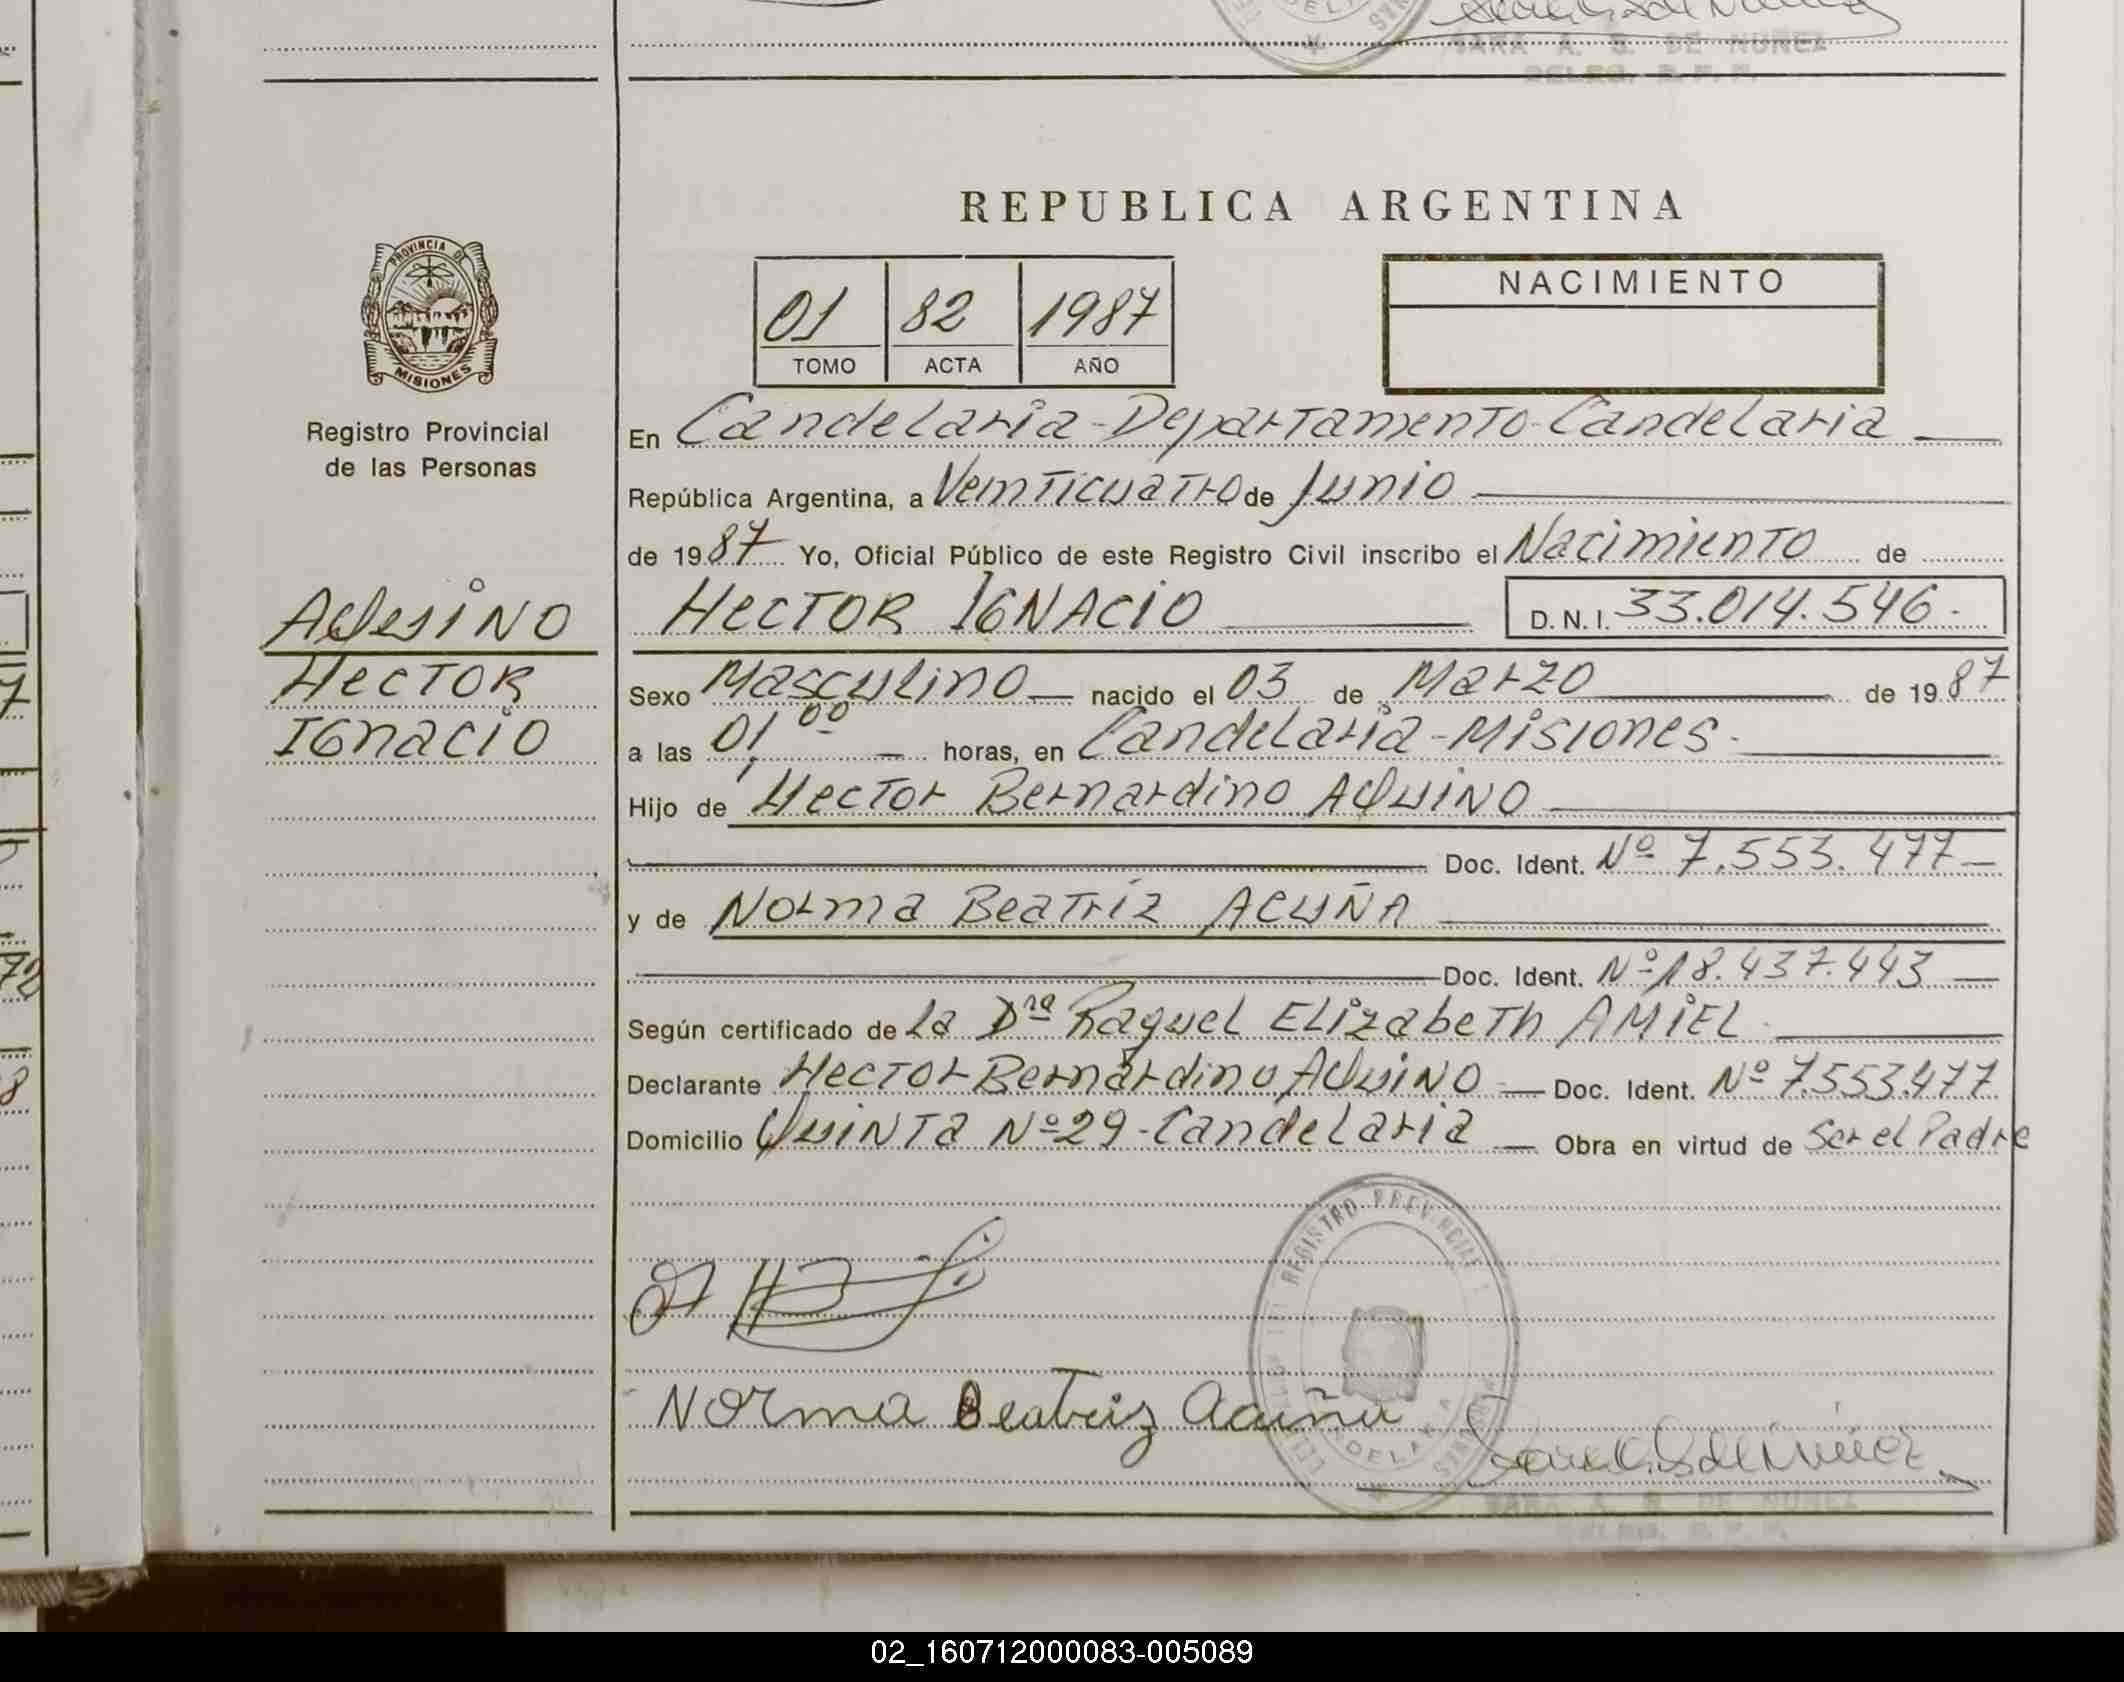 SARA A. S. DE NUÑEZ
DELEG. R. P. P.
REPUBLICA ARGENTINA
PROVINCIA DE
MISIONES
Registro Provincial
de las Personas
01 82 1987
TOMO ACTA AÑO
NACIMIENTO
En Candelaria - Departamento Candelaria
República Argentina, a Veinticuatro de Junio
de 1987 Yo, Oficial Público de este Registro Civil inscribo el Nacimiento de
HECTOR IGNACIO D.N.I. 33.014.546.-
AQuiNO
HECTOR
IGnacio
Sexo Masculino nacido el 03 de Marzo de 1987
a las 01,00 horas, en Candelaria - Misiones.
Hijo de Hector Bernardino AQuiNO
Doc. Ident. Nº 7.553.477
y de Norma Beatriz ACUÑA
Doc. Ident. Nº 18.437.443
Según certificado de La Dra Raquel Elizabeth AMIEL
Declarante Hector Bernardino AQuiNO Doc. Ident. Nº 7.553.477
Domicilio Quinta Nº 29 - Candelaria Obra en virtud de Ser el Padre
REGISTRO PROVINCIAL
Norma Beatriz Acuña
SARA A. S. DE NUÑEZ
DELEG. R. P. P.
02_160712000083-005089